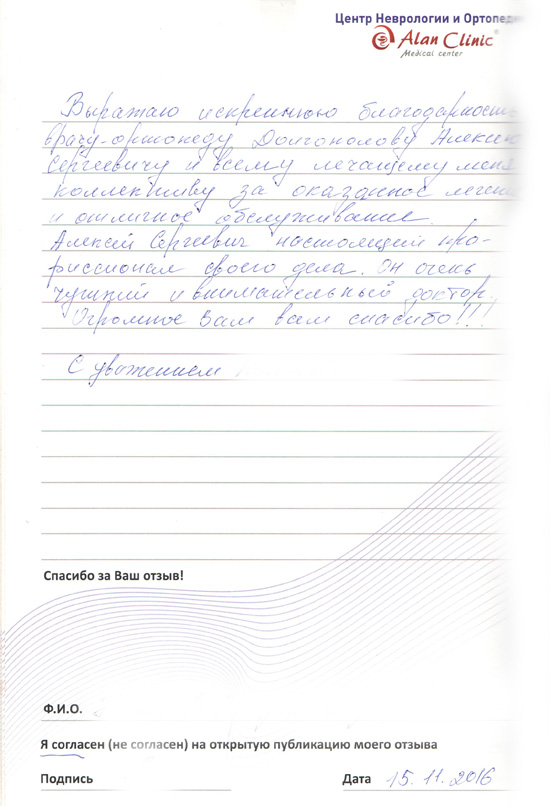 Центр Неврологии и Ортопед
Alan Clinic
Medical center
Выражаю искреннюю благодарность
врачу-ортопеду Долгополову Алексею
Сергеевичу и всему лечащему меня
коллективу за оказанное лечен
и отличное обслуживание.
Алексей Сергеевич настоящий про-
фиссионал своего дела. Он очень
чуткий и внимательный доктор.
Огромное Вам всем спасибо!!!
С уважением
Спасибо за Ваш отзыв!
Ф.И.О.
Я согласен (не согласен) на открытую публикацию моего отзыва
Подпись
Дата 15.11.2016